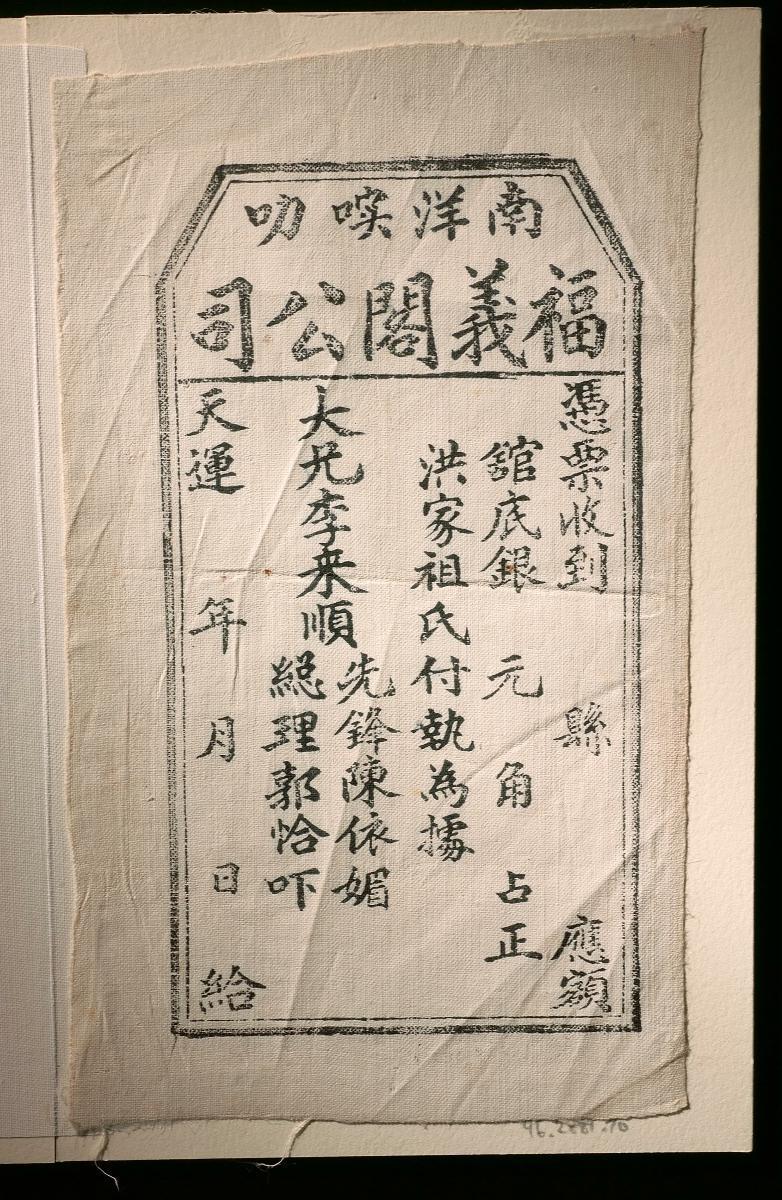 南洋唉叻
福義閣公司
憑票收到 縣 應額
舘底銀 元 角 占正
洪家祖氏付執為據
大兄李来順
先鋒陳依媚
総理郭恰吓
天運 年 月 日 給